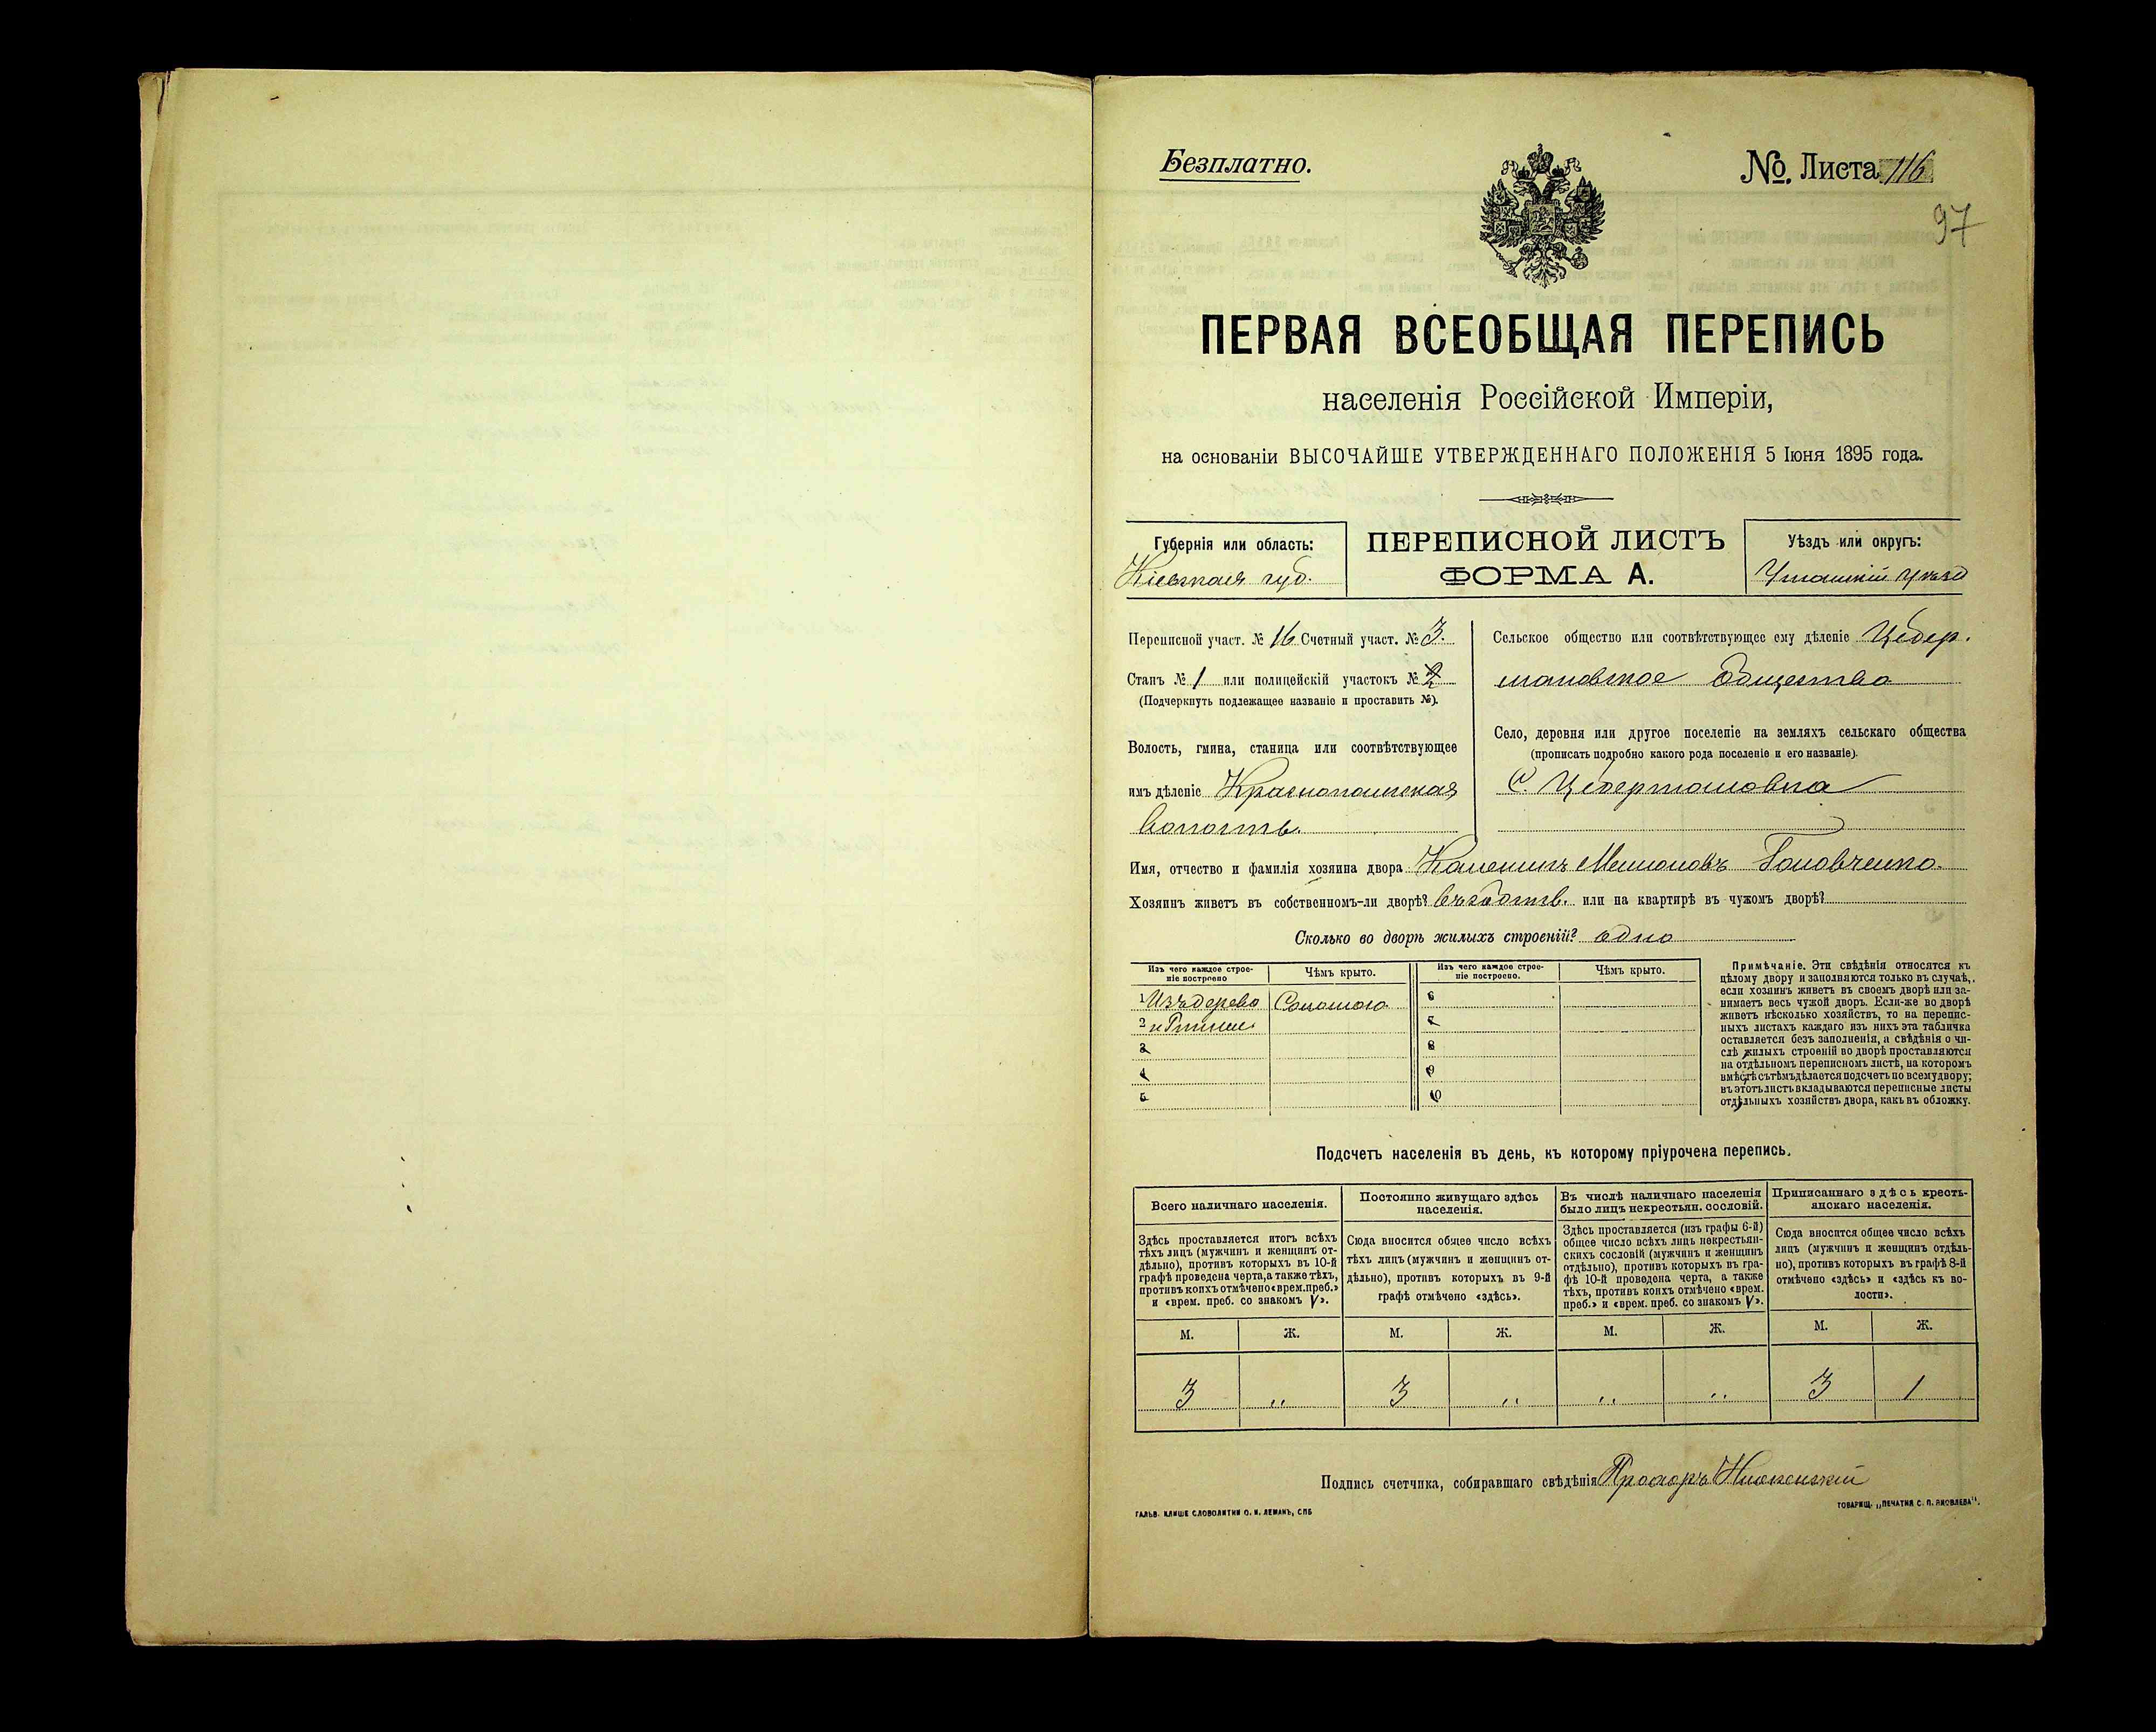 Безплатно.
№. Листа 116
97
ПЕРВАЯ ВСЕОБЩАЯ ПЕРЕПИСЬ
населенія Россійской Имперіи,
на основаніи ВЫСОЧАЙШЕ УТВЕРЖДЕННАГО ПОЛОЖЕНІЯ 5 Іюня 1895 года.
Губернія или область:
Кіевская губ.
ПЕРЕПИСНОЙ ЛИСТЪ
ФОРМА А.
Уѣздъ или округъ:
Уманскій уѣзд
Переписной участ. № 16 Счетный участ. № 3.
Станъ № 1 или полицейскій участокъ № 2
(Подчеркнуть подлежащее названіе и проставить №).
Волость, гмина, станица или соотвѣтствующее
имъ дѣленіе Краснопольская
волость.
Сельское общество или соотвѣтствующее ему дѣленіе Цебер.
мановское Общество
Село, деревня или другое поселеніе на земляхъ сельскаго общества
(прописать подробно какого рода поселеніе и его названіе).
С. Цебермановка
Имя, отчество и фамилія хозяина двора Головченко.
Хозяинъ живетъ въ собственномъ-ли дворѣ? въ собств. или на квартирѣ въ чужомъ дворѣ?
Сколько во дворѣ жилыхъ строеній? одно
Изъ чего каждое строе-
ніе построено
Чѣмъ крыто.
Изъ чего каждое строе-
ніе построено.
Чѣмъ крыто.
1 Изъ дерева Соломою
2 и Глины
3
4
5
6
7
8
9
10
Примѣчаніе. Эти свѣдѣнія относятся къ
цѣлому двору и заполняются только въ случаѣ,
если хозяинъ живетъ въ своемъ дворѣ или за-
нимаетъ весь чужой дворъ. Если-же во дворѣ
живетъ нѣсколько хозяйствъ, то на перепис-
ныхъ листахъ каждаго изъ нихъ эта табличка
оставляется безъ заполненія, а свѣдѣнія о чи-
слѣ жилыхъ строеній во дворѣ проставляются
на отдѣльномъ переписномъ листѣ, на которомъ
вмѣстѣ съ тѣмъ дѣлается подсчетъ по всему двору;
въ этотъ листъ вкладываются переписные листы
отдѣльныхъ хозяйствъ двора, какъ въ обложку.
Подсчетъ населенія въ день, къ которому пріурочена перепись.
Всего наличнаго населенія.
Здѣсь проставляется итогъ всѣхъ
тѣхъ лицъ (мужчинъ и женщинъ от-
дѣльно), противъ которыхъ въ 10-й
графѣ проведена черта, а также тѣхъ,
противъ коихъ отмѣчено «врем. преб.»
и «врем. преб. со знакомъ V».
Постоянно живущаго здѣсь
населенія.
Сюда вносится общее число всѣхъ
тѣхъ лицъ (мужчинъ и женщинъ от-
дѣльно), противъ которыхъ въ 9-й
графѣ отмѣчено «здѣсь».
Въ числѣ наличнаго населенія
было лицъ некрестьян. сословій.
Здѣсь проставляется (изъ графы 6-й)
общее число всѣхъ лицъ некрестьян-
скихъ сословій (мужчинъ и женщинъ
отдѣльно), противъ которыхъ въ гра-
фѣ 10-й проведена черта, а также
тѣхъ, противъ коихъ отмѣчено «врем.
преб.» и «врем. преб. со знакомъ V».
Приписаннаго здѣсь кресть-
янскаго населенія.
Сюда вносится общее число всѣхъ
лицъ (мужчинъ и женщинъ отдѣль-
но), противъ которыхъ въ графѣ 8-й
отмѣчено «здѣсь» и «здѣсь къ во-
лости».
М. Ж. М. Ж. М. Ж. М. Ж.
3 „ 3 „ „ „ 3 1
Подпись счетчика, собиравшаго свѣдѣнія
ГАЛЬВ. КЛИШЕ СЛОВОЛИТНИ О. И. ЛЕМАНЪ, СПБ
ТОВАРИЩ. „ПЕЧАТНЯ С. П. ЯКОВЛЕВА".